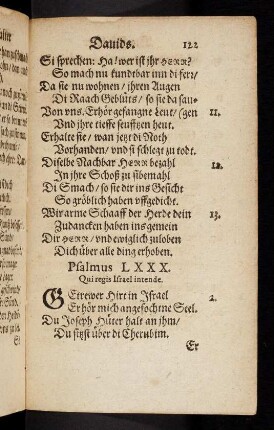 Dauids. 122
Si sprechen: Ha! wer ist jhr HERR?
So mach nu kundtbar inn di ferr/
Da sie nu wohnen/ jhren Augen
Di Raach Geblüts/ so sie da sau-
Von vns. Erhör gefangne Leut/ (gen 11.
Vnd jhre tieffe seufftzen heut.
Erhalte sie/ wan jetzt di Noth
Vorhanden/ vnd si schlegt zu todt.
Diselbe Nachbar HERR bezahl 12.
In jhre Schoß zu sibemahl
Di Smach/ so sie dir ins Gesicht
So gröblich haben vffgedicht.
Wir arme Schaaff der Herde dein 13.
Zudancken haben ins gemein
Dir HERR/ vnd ewiglich zuloben
Dich über alle ding erhoben.
Psalmus LXXX.
Qui regis Israel intende.
GEtrewer Hirt in Jsrael 2.
Erhör mich angefochtne Seel.
Du Joseph Hüter halt an jhm/
Du sitzst über di Cherubim.
Er